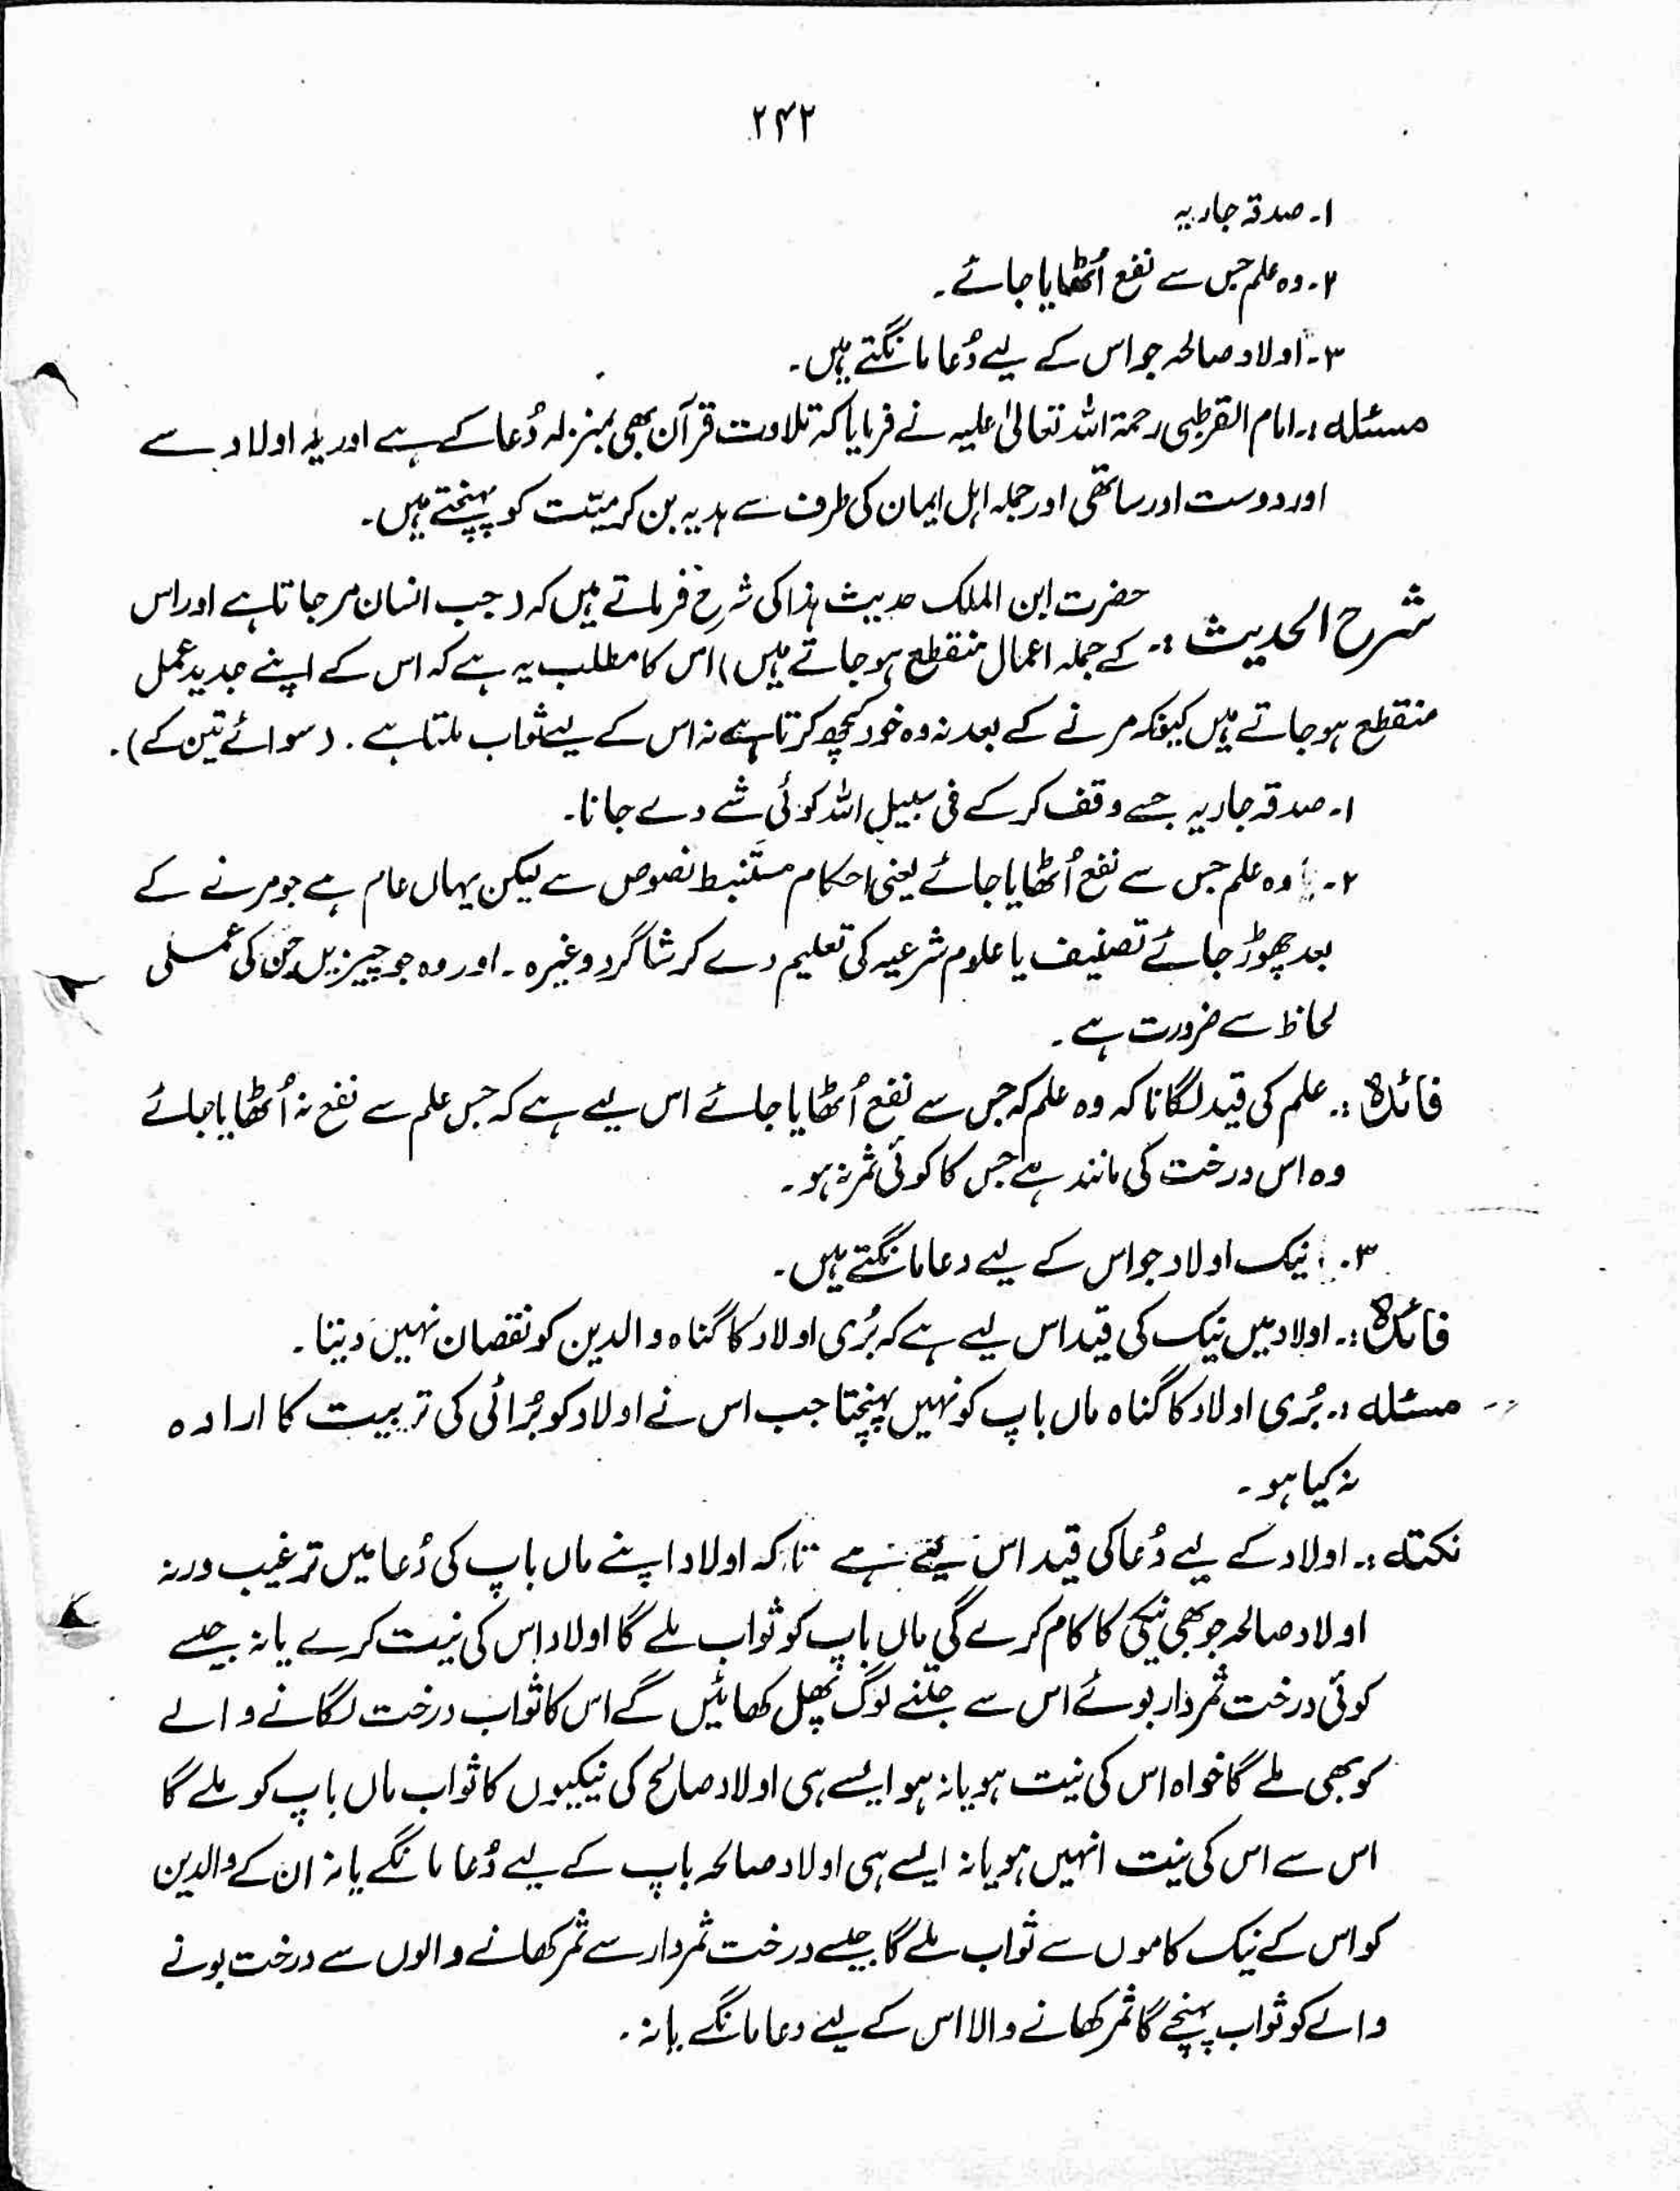 ۲۴۲
۱۔ صدقہ جاریہ
۲۔ وہ علم جس سے نفع اُٹھایا جائے۔
۳۔ اولاد صالحہ جو اس کے لیے دُعا مانگتے ہیں۔
مسئلہ :۔ امام القرطبی رحمۃ اللہ تعالیٰ علیہ نے فرمایا کہ تلاوت قرآن بھی بمنزلہ دُعا کے ہے اور یہ اولاد سے
اور دوست اور ساتھی اور جملہ اہل ایمان کی طرف سے ہدیہ بن کر میّت کو پہنچتے ہیں۔
شرح الحدیث :۔ حضرت ابن الملک حدیث ہذا کی شرح فرماتے ہیں کہ (جب انسان مر جاتا ہے اور اس
کے جملہ اعمال منقطع ہو جاتے ہیں) اس کا مطلب یہ ہے کہ اس کے اپنے جدید عمل
منقطع ہو جاتے ہیں کیونکہ مرنے کے بعد نہ وہ خود کچھ کرتا ہے نہ اس کے لیے ثواب ملتا ہے۔ (سوائے تین کے)۔
۱۔ صدقہ جاریہ جسے وقف کر کے فی سبیل اللہ کوئی شے دے جانا۔
۲۔ وہ علم جس سے نفع اُٹھایا جائے یعنی احکام مستنبط نصوص سے لیکن یہاں عام ہے جو مرنے کے
بعد چھوڑ جائے تصنیف یا علوم شرعیہ کی تعلیم دے کر شاگرد وغیرہ۔ اور وہ جو چیزیں جن کی عملی
لحاظ سے ضرورت ہے۔
فائدہ :۔ علم کی قید لگانا کہ وہ علم کہ جس سے نفع اُٹھایا جائے اس لیے ہے کہ جس علم سے نفع نہ اُٹھایا جائے
وہ اس درخت کی مانند ہے جس کا کوئی ثمر نہ ہو۔
۳۔ نیک اولاد جو اس کے لیے دعا مانگتے ہیں۔
فائدہ :۔ اولاد میں نیک کی قید اس لیے ہے کہ بُری اولاد کا گناہ والدین کو نقصان نہیں دیتا۔
مسئلہ :۔ بُری اولاد کا گناہ ماں باپ کو نہیں پہنچتا جب اس نے اولاد کو بُرائی کی تربیت کا ارادہ
نہ کیا ہو۔
نکتہ :۔ اولاد کے لیے دُعا کی قید اس لیے ہے تاکہ اولاد اپنے ماں باپ کی دُعا میں ترغیب ورنہ
اولاد صالحہ جو بھی نیکی کا کام کرے گی ماں باپ کو ثواب ملے گا اولاد اس کی نیت کرے یا نہ جیسے
کوئی درخت ثمر دار بوئے اس سے جتنے لوگ پھل کھائیں گے اس کا ثواب درخت لگانے والے
کو بھی ملے گا خواہ اس کی نیت ہو یا نہ ہو ایسے ہی اولاد صالح کی نیکیوں کا ثواب ماں باپ کو ملے گا
اس سے اس کی نیت انہیں ہو یا نہ ایسے ہی اولاد صالحہ باپ کے لیے دُعا مانگے یا نہ ان کے والدین
کو اس کے نیک کاموں سے ثواب ملے گا جیسے درخت ثمر دار سے ثمر کھانے والوں سے درخت بونے
والے کو ثواب پہنچے گا ثمر کھانے والا اس کے لیے دعا مانگے یا نہ۔